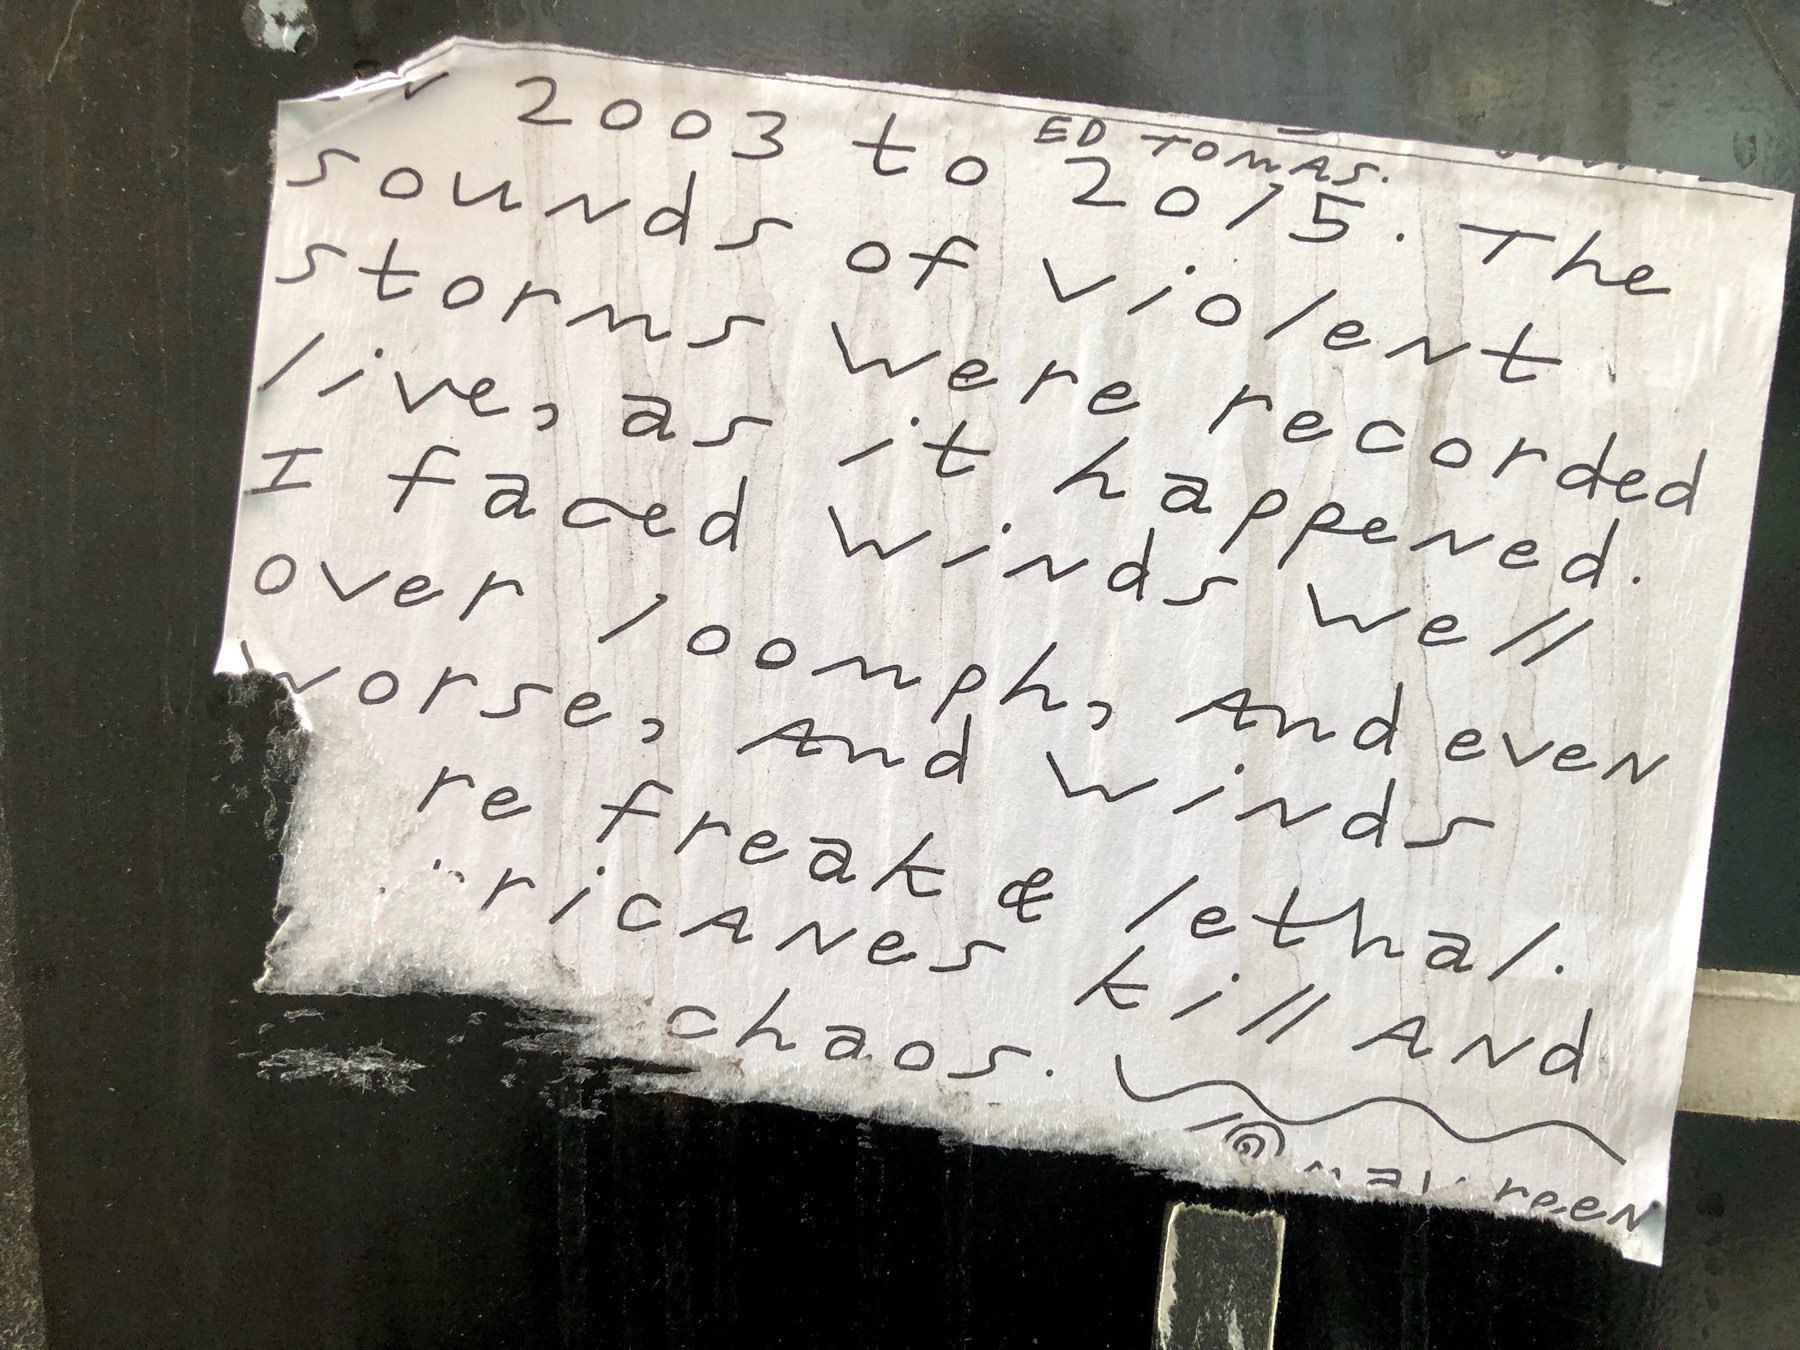 ED TOMAS.
2003 to 2015. The
sounds of violent
storms were recorded
live, as it happened.
I faced winds well
over 100mph, And even
worse, And winds
re freak & lethal.
ricANes kill ANd
chaos.
reeN